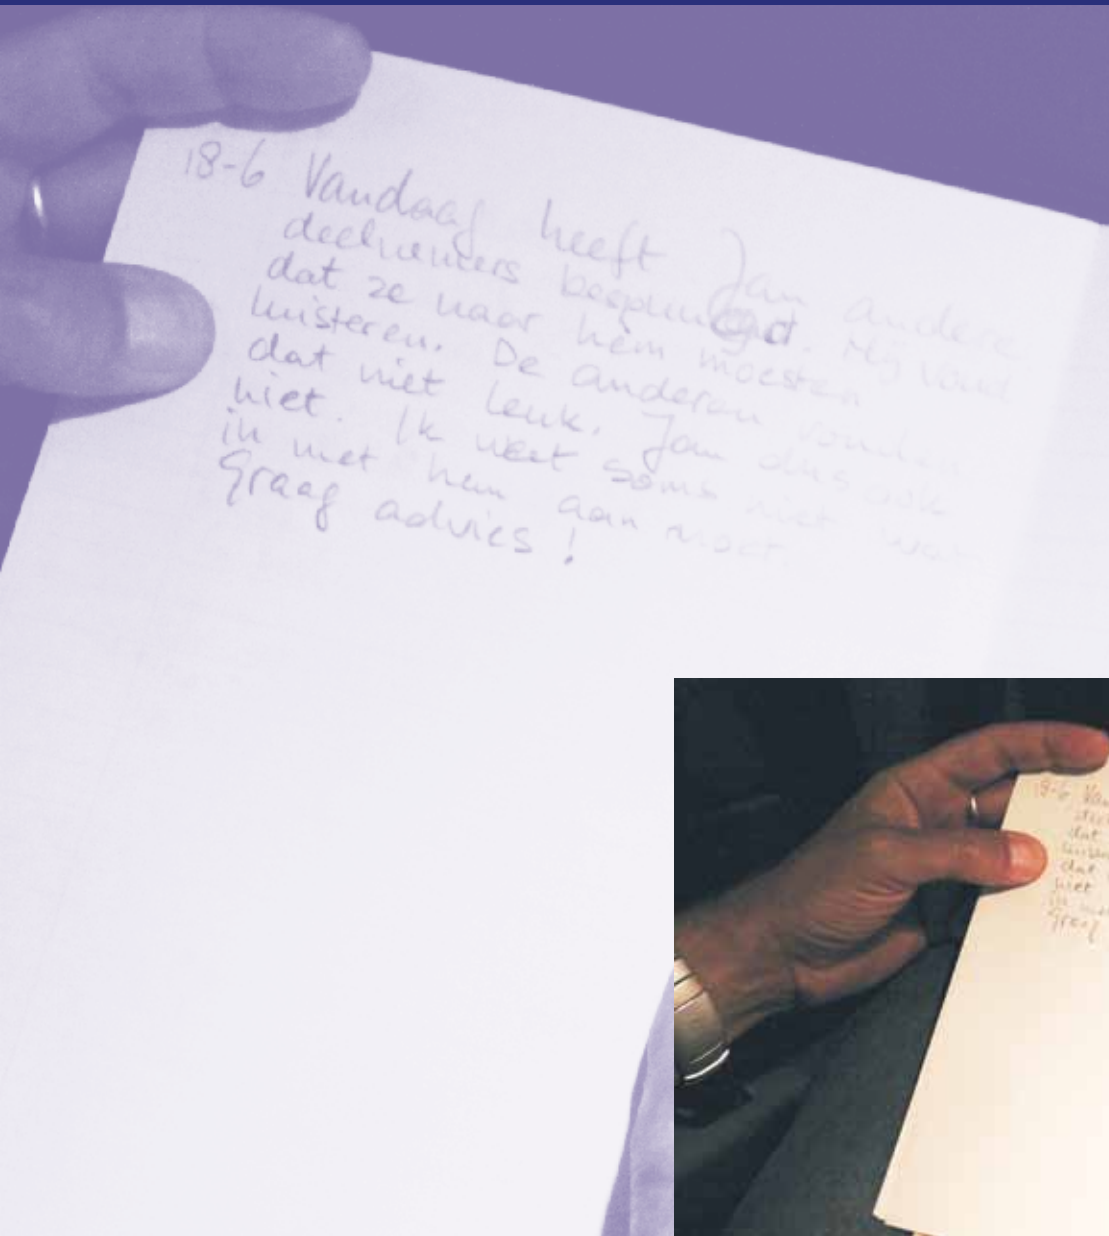 18-6 Vandaag heeft Jan andere
deelnemers Hij vond
dat ze naar hem moesten
luisteren. De anderen vonden
dat niet leuk. Jan dus ook
niet. Ik weet soms niet
met hem aan moet
Graag advies!
18-6 Van
dat
dat
niet
Graag